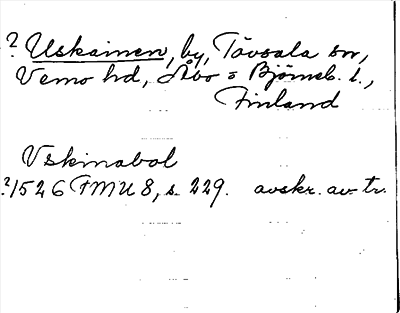 ? Uskainen, by, Tövsala sn,
Vemo hd, Åbo o Björneb. l.,
Finland
Vskinabol
?1526 FMU 8, s. 229. avskr. av tr.